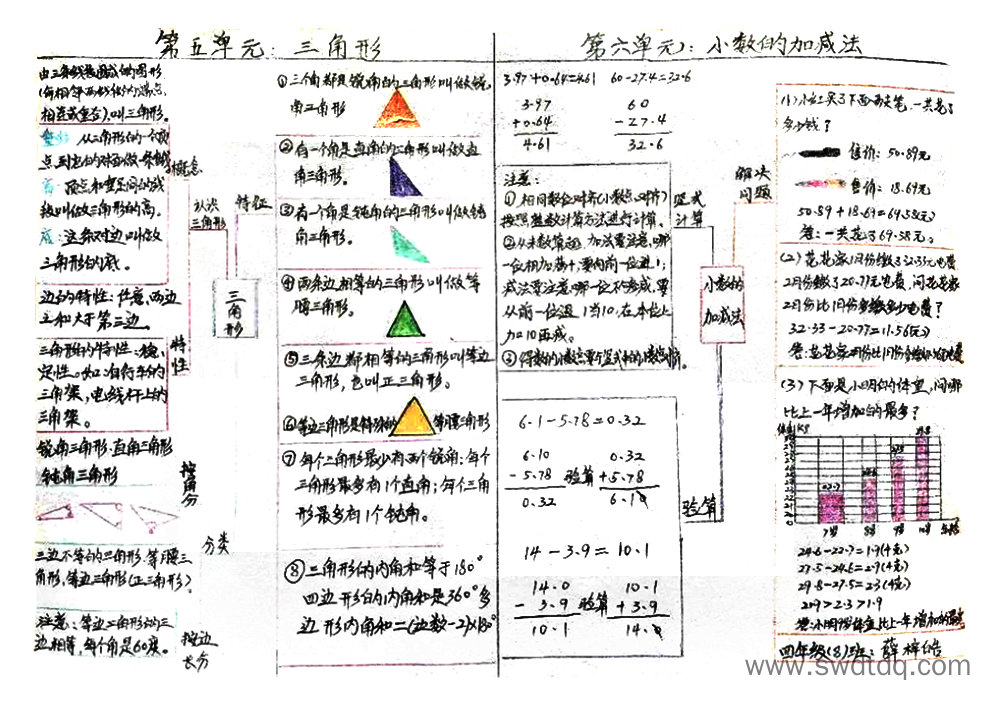 第五单元：三角形
由三条线段围成的图形
(每相邻两条线段的端点
相连或重合),叫三角形。
从三角形的一个顶
点到它的对边做一条
高 顶点和垂足间的线
段叫做三角形的高。
底：这条对边叫做
三角形的底。
概念
认识
三角形
特征
三角形
边的特性：任意两边
之和大于第三边
三角形的特性：稳
定性。如：自行车的
三角架，电线杆上的
三角架。
特性
锐角三角形·直角三角形
钝角三角形
按角分
分类
三边不等的三角形·等腰三
角形，等边三角形(正三角形)
注意：等边三角形的三
边相等，每个角是60度。
按边
长分
①三个角都是锐角的三角形叫做锐
角三角形
②有一个角是直角的三角形叫做直
角三角形。
③有一个角是钝角的三角形叫做钝
角三角形。
④两条边相等的三角形叫做等
腰三角形
⑤三条边都相等的三角形叫等边
三角形，也叫正三角形。
⑥等边三角形是特殊的等腰三角形
⑦每个三角形最少有两个锐角；每个
三角形最多有1个直角；每个三角
形最多有1个钝角。
⑧三角形的内角和等于180°
四边形的内角和是360°多
边形内角和=(边数-2)×180°
第六单元：小数的加减法
3.97+0.64=4.61 60-27.4=32.6
3.97
+0.64
4.61
60
-27.4
32.6
注意：
①相同数位对齐(小数点对齐)
按照整数计算方法进行计算。
②从末数算起，加法要注意哪
一位相加满十，要向前一位进1；
减法要注意哪一位不够减，要
从前一位退1当10，在本位上
加10再减。
③得数的小数点要与竖式中的小数点对齐。
竖式
计算
小数的
加减法
解决
问题
6.1-5.78=0.32
6.10
-5.78
0.32
验算
0.32
+5.78
6.10
14-3.9=10.1
14.0
-3.9
10.1
验算
10.1
+3.9
14.0
验算
(1)小红买了下面两支笔，一共花了
多少钱？
售价：50.89元
售价：18.69元
50.89+18.69=69.58(元)
答：一共花了69.58元。
(2)花花家1月份缴了32.33元电费
2月份缴了20.77元电费，问花花家
2月份比1月份少缴多少电费？
32.33-20.77=11.56(元)
(3)下面是小明的体重，问哪
比上一年增加的最多？
体重/kg
22.7
24.6
27.5
29.8
7岁 8岁 9岁 10岁
24.6-22.7=1.9(千克)
27.5-24.6=2.9(千克)
29.8-27.5=2.3(千克)
2.9>2.3>1.9
四年级(8)班：薛梓皓
www.swdtdq.com